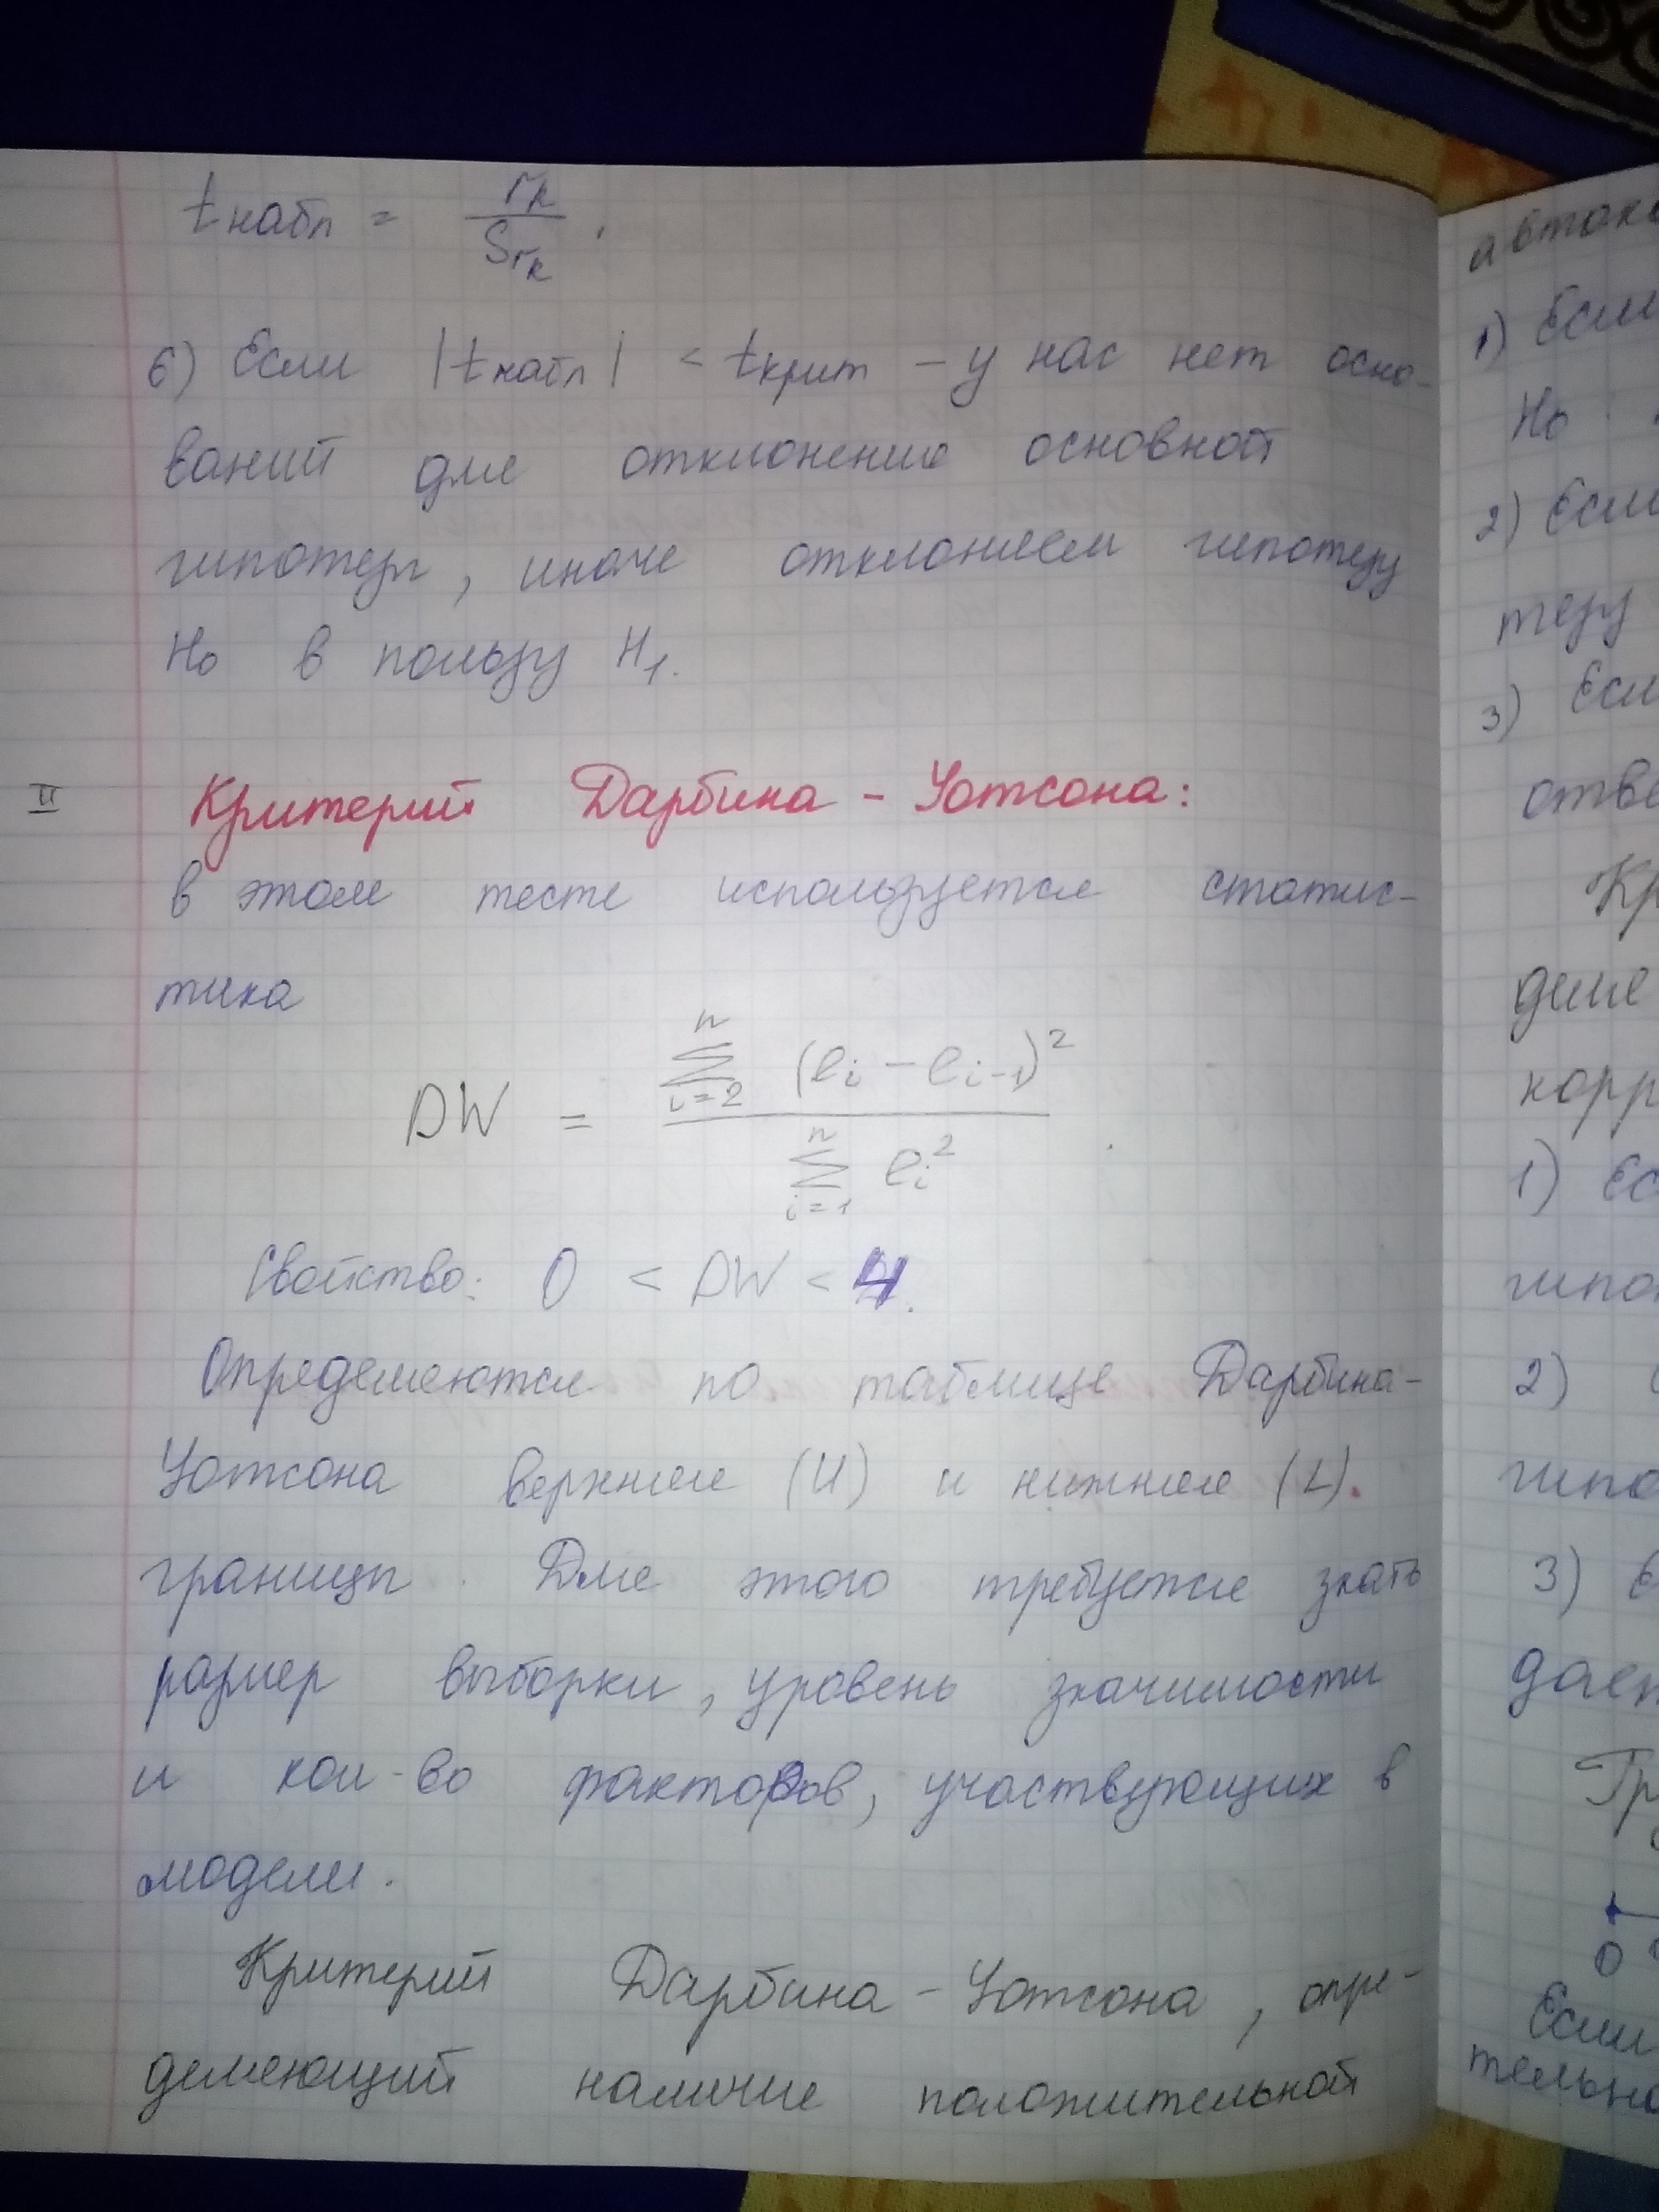 tнабл = rk / Srk .
6) Если |tнабл| < tкрит – у нас нет осно-
ваний для отклонения основной
гипотезы, иначе отклоняем гипотезу
H0 в пользу H1.
II Критерий Дарбина – Уотсона:
в этом тесте используется статис-
тика
DW = ∑ⁿᵢ₌₂ (eᵢ – eᵢ₋₁)² / ∑ⁿᵢ₌₁ eᵢ² .
Свойство: 0 < DW < 4.
Определяются по таблице Дарбина-
Уотсона верхняя (U) и нижняя (L).
границы. Для этого требуется знать
размер выборки, уровень значимости
и кол-во факторов, участвующих в
модели.
Критерий Дарбина – Уотсона, опре-
деляющий наличие положительной
1) Если
H0
2) Если
тезу
3)
отве
Кр
корр
1)
2)
3)
Гр
0
Если
тельно